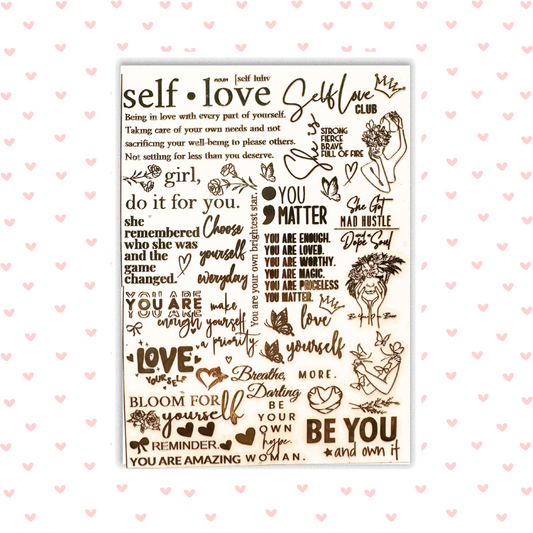 noun [self luhv
self • love
Being in love with every part of yourself.
Taking care of your own needs and not
sacrificing your well-being to please others.
Not settling for less than you deserve.
Self Love
CLUB
She is
STRONG
FIERCE
BRAVE
FULL OF FIRE
girl,
do it for you.
she
remembered
who she was
and the
game
changed.
Choose
yourself
everyday
You are your own brightest star.
YOU
MATTER
YOU ARE ENOUGH.
YOU ARE LOVED.
YOU ARE WORTHY.
YOU ARE MAGIC.
YOU ARE PRICELESS
YOU MATTER.
She Got
MAD HUSTLE
and a
Dope Soul
YOU ARE
YOU ARE
YOU ARE
enough
make
yourself
a priority
love
yourself
MORE.
LOVE
YOURSELF
Breathe,
Darling
BLOOM FOR
yourself
BE
YOUR
OWN
hype.
BE YOU
and own it
REMINDER.
YOU ARE AMAZING WOMAN.